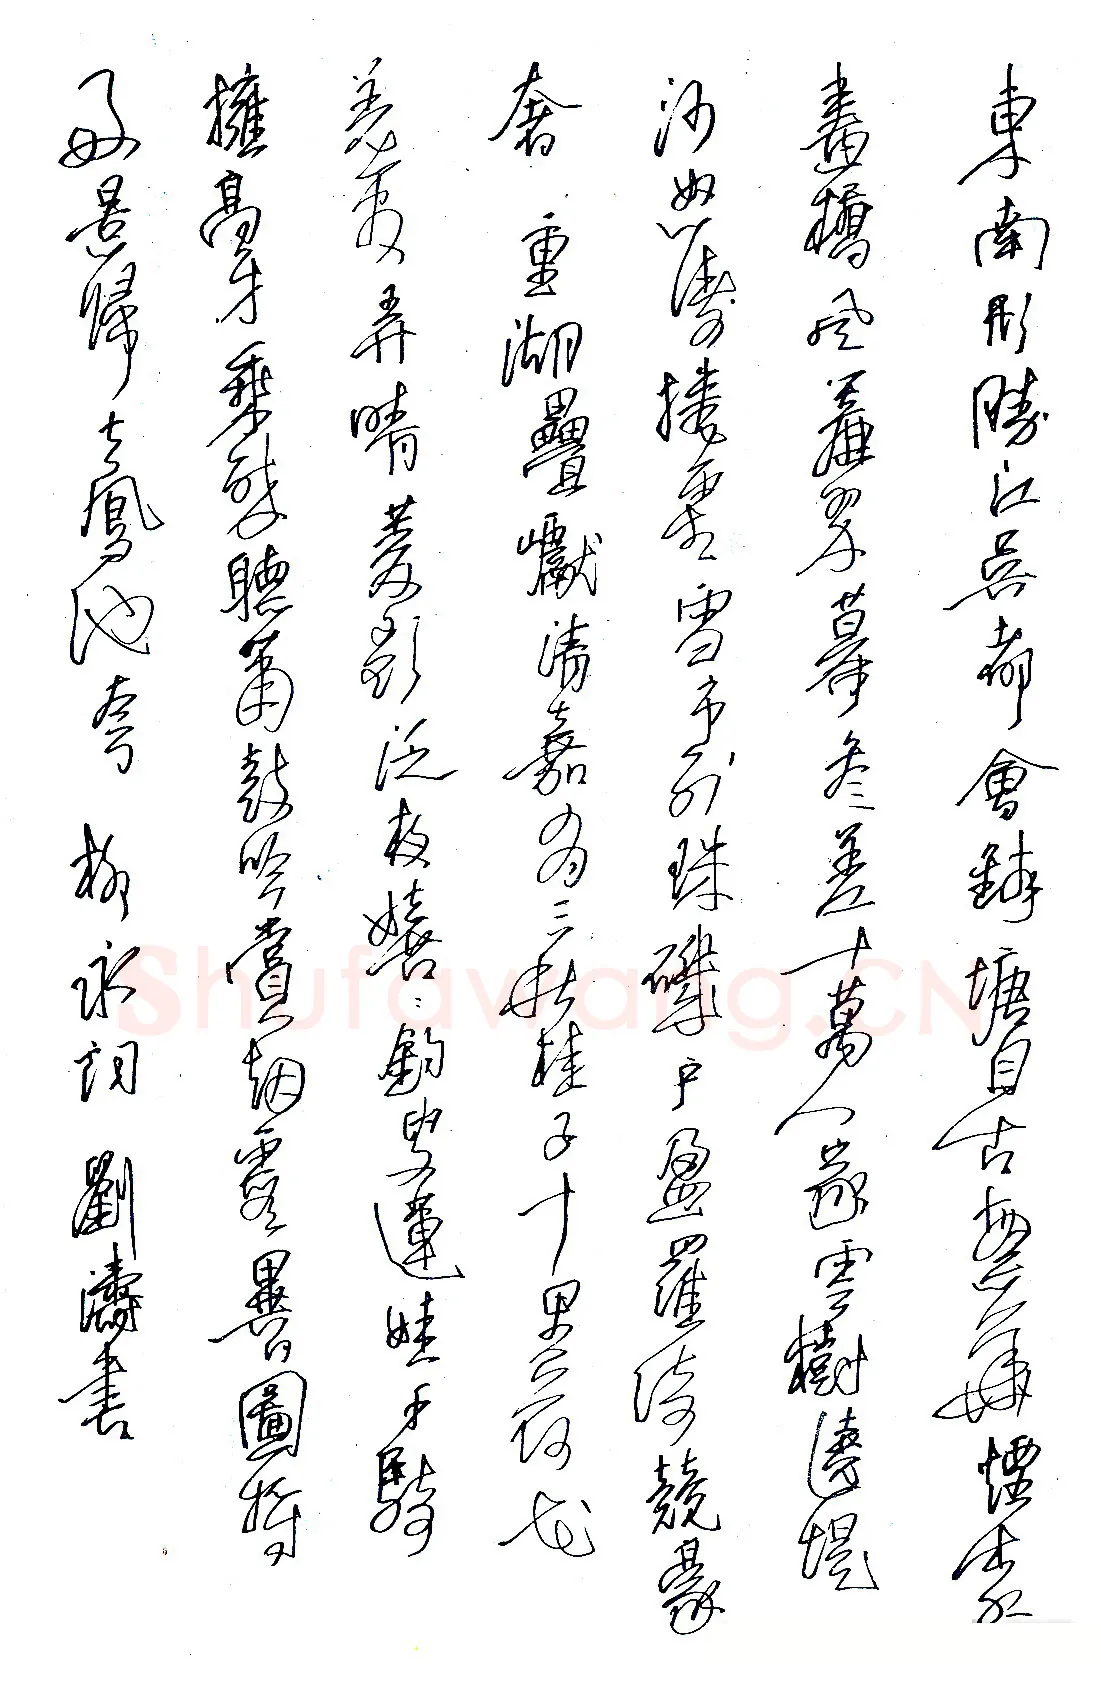 東南形勝江吳都會錢塘自古繁華煙柳
畫橋風簾翠幕參差十萬人家雲樹遶堤
沙怒濤捲霜雪市列珠璣戶盈羅綺競豪
奢 重湖疊巘清嘉有三秋桂子十里荷花
羌管弄晴菱歌泛夜嬉〻釣叟蓮娃千騎
擁高牙乘醉聽簫鼓吟賞烟霞異日圖將
好景歸去鳳池夸 柳永詞 劉濤書
Shufawang.CN